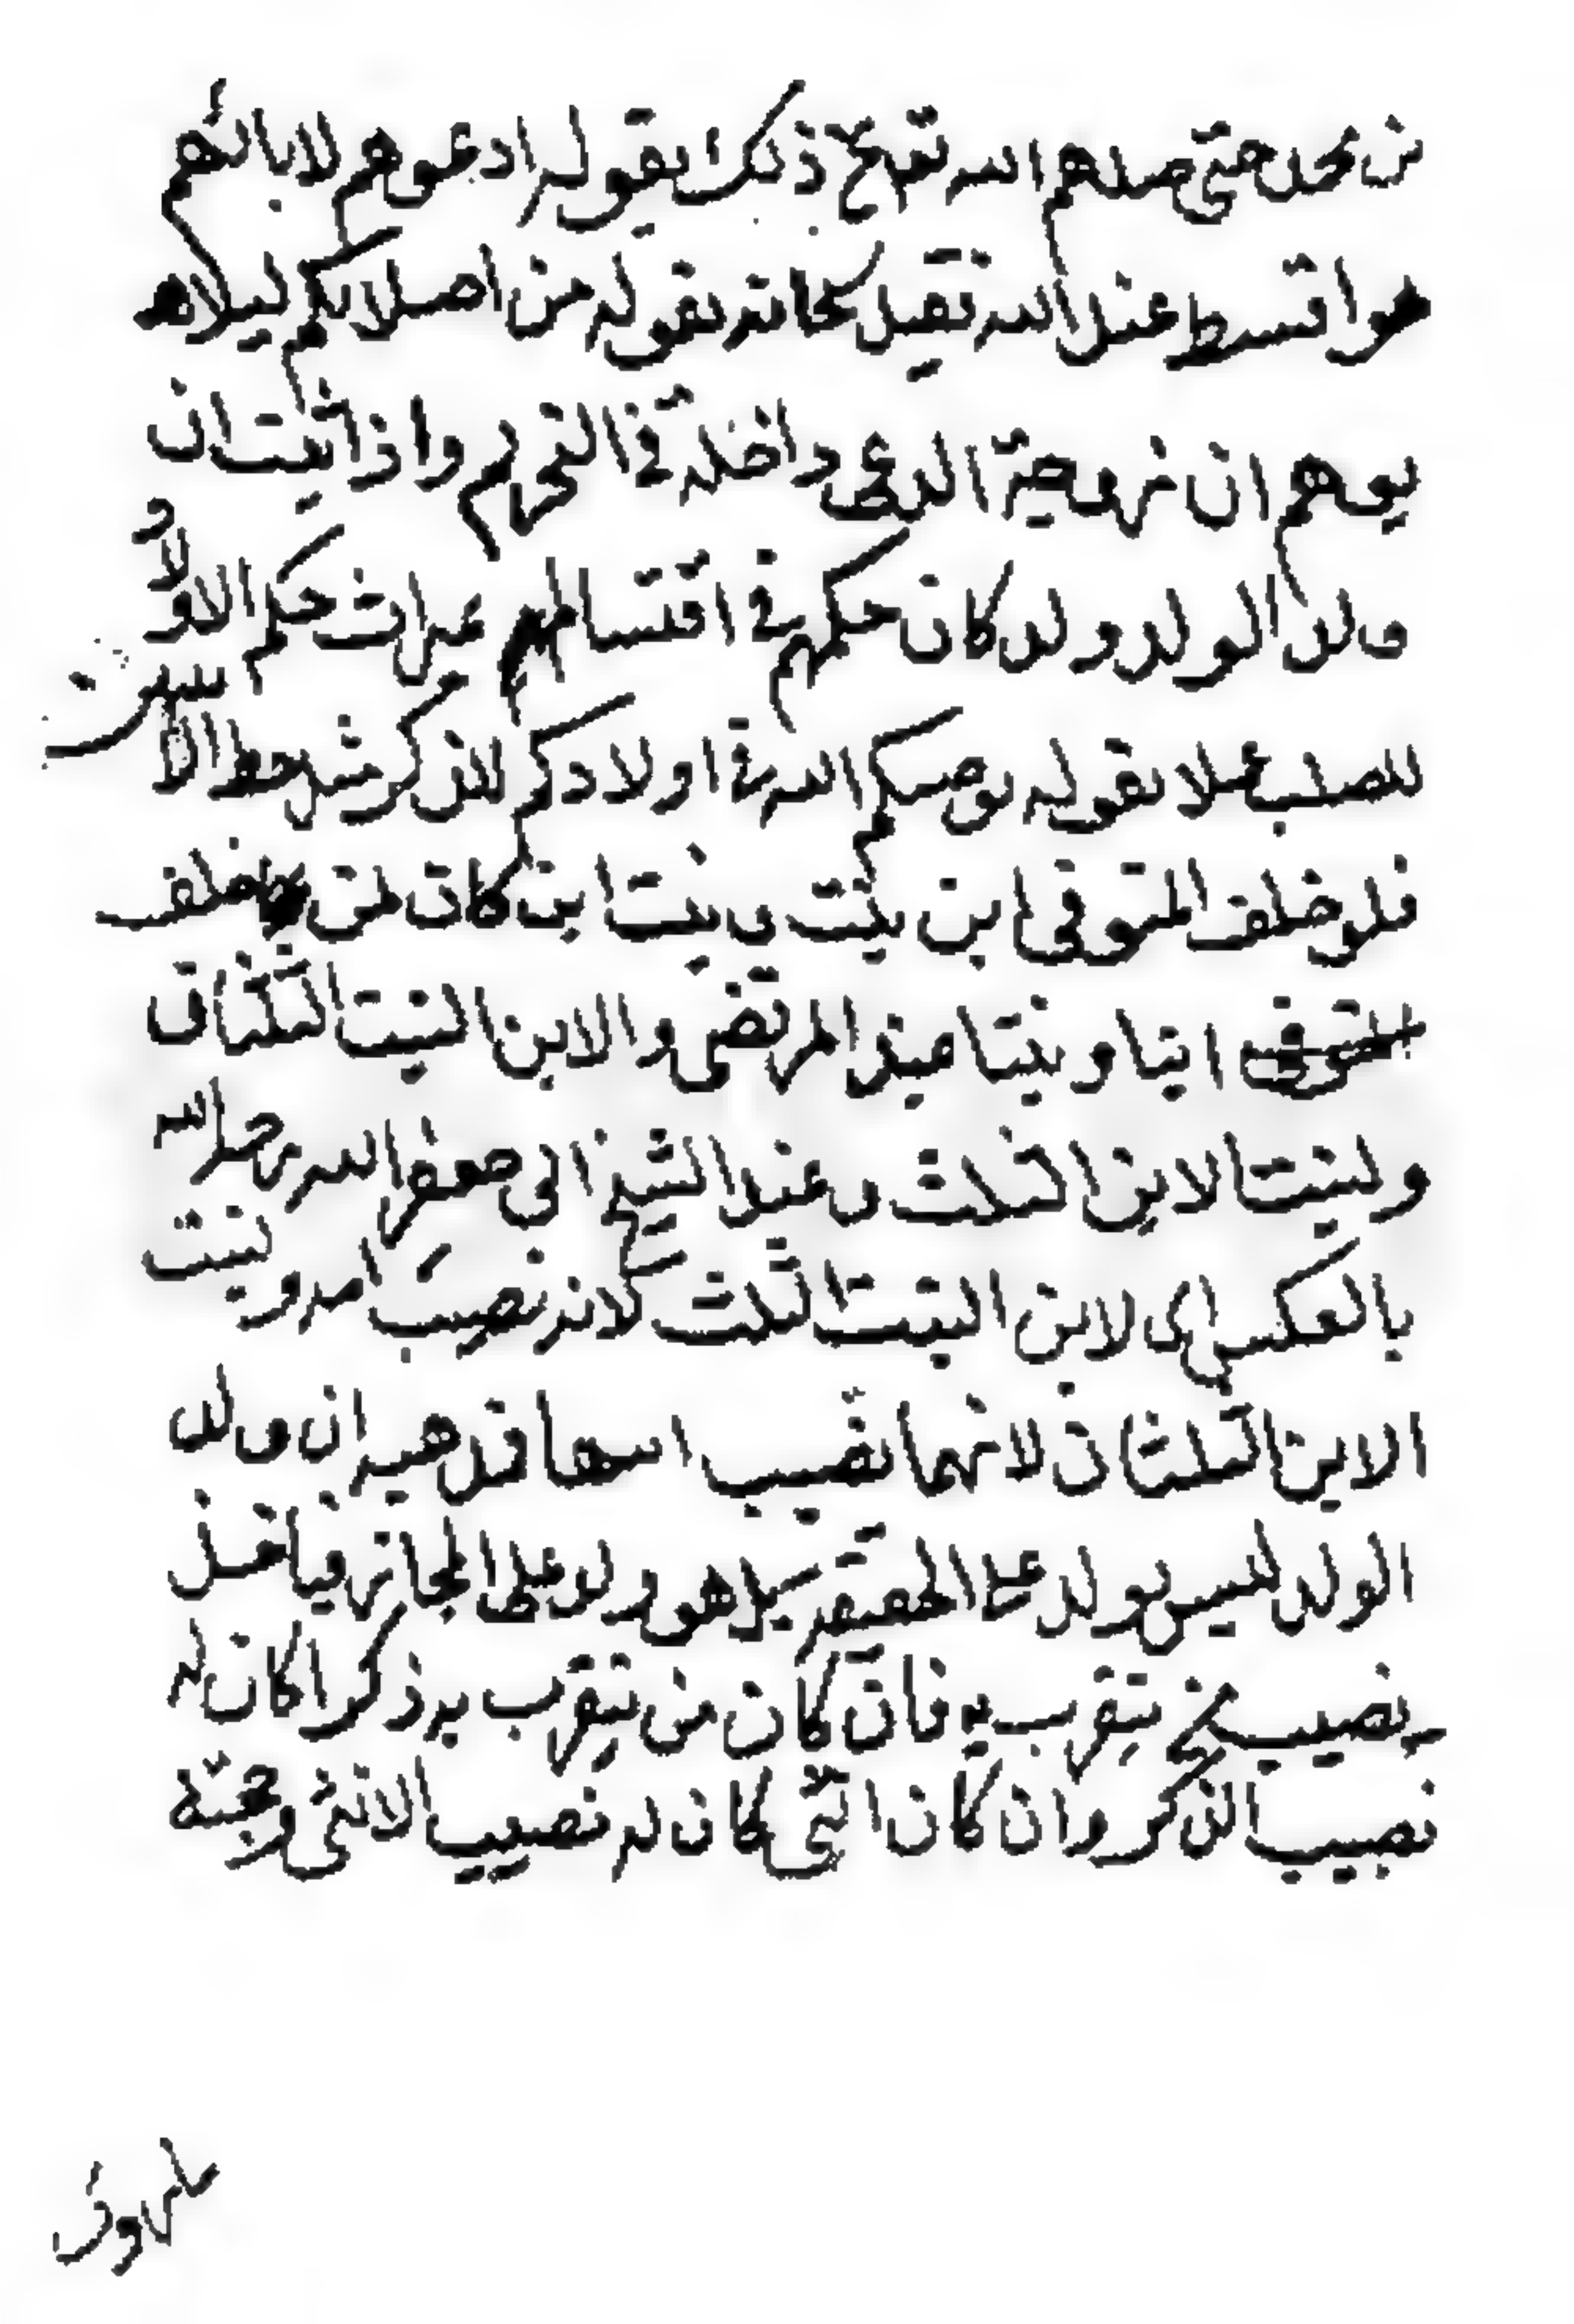 بن محمد حتى صدهم الله تع نسخ ذلك بقوله ادعوهم لابائهم
هو اقسط عند الله تقبل كانه بقوله من اصلابكم ليلا
يوهم ان زوجة الدعى داخلة في التحريم واذا ثبت ان
ولد الولد ولد كان حكمهم في اقتسامهم ميراث حكم الاولاد
للصلب عملا بقوله يوصيكم الله في اولادكم للذكر مثل حظ الانثيين
فلو خلف المتوفى ابن بنت وبنت ابن كان لمن خلف
المتوفى ابنا وبنتا فعند المرتضى والابن البنت الثلثان
ولبنت الابن الثلث وعند الشيخ ابى جعفر الله رحمه الله
بالعكس اى لابن البنت الثلث لانه نصيب امه وبنت
الابن الثلثان لانهما نصيب ابيها قد هبه ان ولد
الولد ليس بولد على الحقيقة بل هو ولد على المجاز فياخذ
نصيب من يتقرب به فان كان من يتقرب به ذكرا كان له
نصيب الذكر وان كان انثى كان له نصيب الانثى وحجته